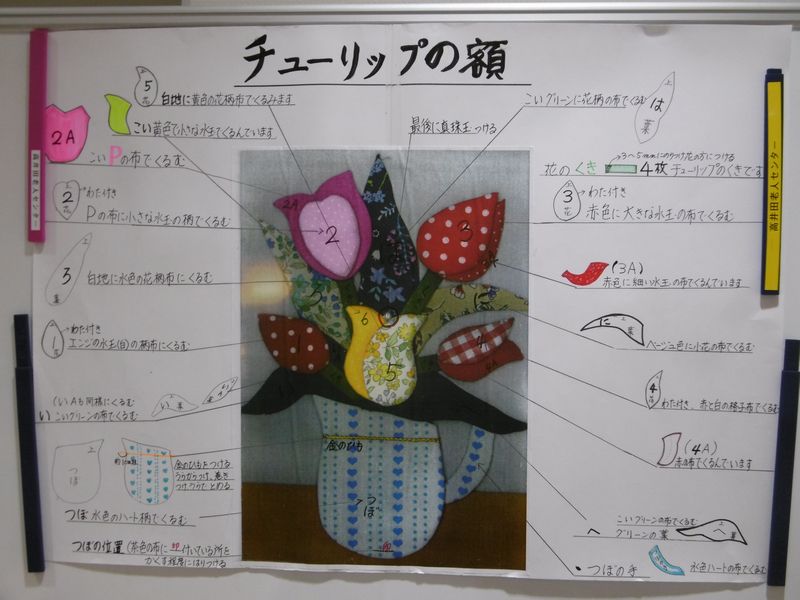 チューリップの額
5
花
上
白地に黄色の花柄布でくるみます
こい黄色で小さな水玉でくるんでいます
2A
こいPの布でくるむ
上
2
花
わた付き
Pの布に小さな水玉の柄でくるむ
上
3
葉
白地に水色の花柄布にくるむ
上
1
花
わた付き
エンジの水玉(白)の柄布にくるむ
(いAも同様にくるむ
い こいグリーンの布でくるむ
い 葉
上
つぼ
金のひもをつける
つぼ 水色のハート柄でくるむ
つぼの位置(茶色の布に印付いている所を
かくす程度にはりつける
最後に真珠玉つける
こいグリーンに花柄の布でくるむ
上
は
葉
花のくき
3〜5mmにのりつけ花の方につける
4枚 チューリップのくきです
3
花
わた付き
赤色に大きな水玉の布でくるむ
(3A)
赤色に細い水玉の布でくるんでいます
に 葉
ベージュ色に小花の布でくるむ
4
花
わた付き、赤と白の格子布でくるむ
(4A)
赤の布でくるんでいます
こいグリーンの布でくるむ
へ グリーンの葉
上
へ 葉
・つぼの手
水色ハートの布でくるむ
2A
2
3
は
3
に
6
1
5
4
4A
金のひも
つぼ
印
高井田老人センター
高井田老人センター